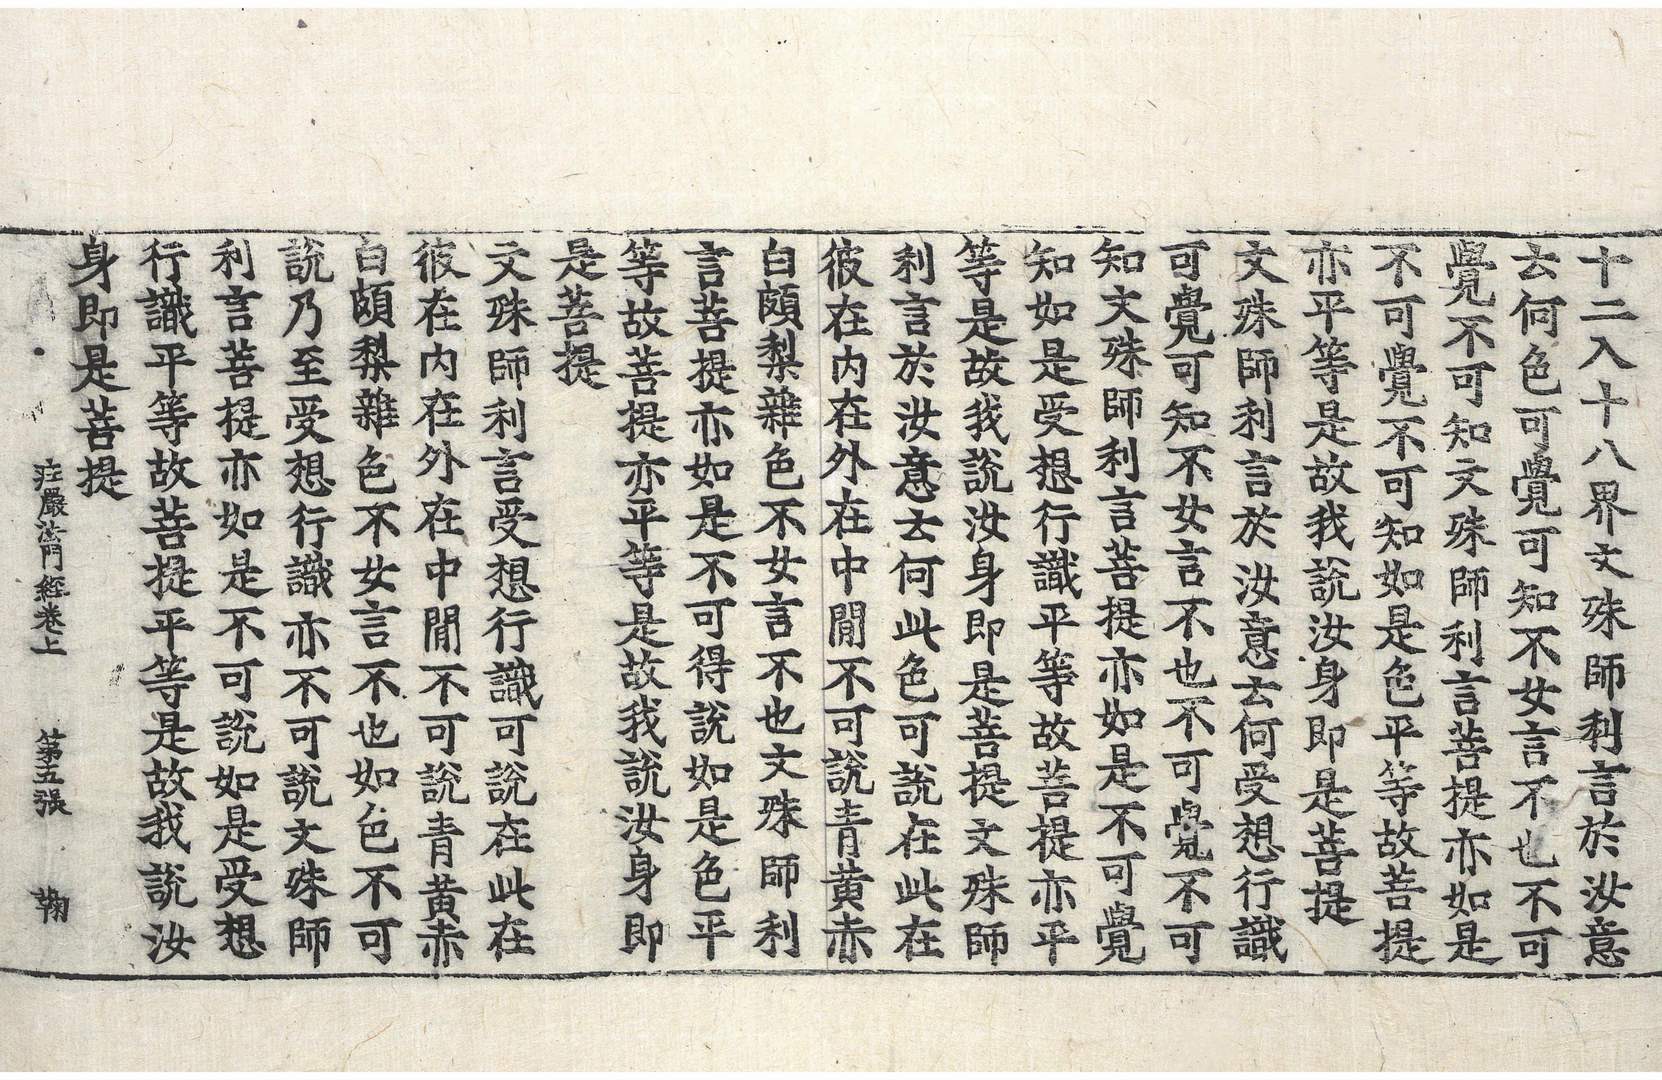 十二入十八界文殊師利言於汝意
云何色可覺可知不女言不也不可
覺不可知文殊師利言菩提亦如是
不可覺不可知如是色平等故菩提
亦平等是故我說汝身即是菩提
文殊師利言於汝意云何受想行識
可覺可知不女言不也不可覺不可
知文殊師利言菩提亦如是不可覺
知如是受想行識平等故菩提亦平
等是故我說汝身即是菩提文殊師
利言於汝意云何此色可說在此在
彼在内在外在中閒不可說青黃赤
白頗梨雜色不女言不也文殊師利
言菩提亦如是不可得說如是色平
等故菩提亦平等是故我說汝身即
是菩提
文殊師利言受想行識可說在此在
彼在内在外在中閒不可說青黃赤
白頗梨雜色不女言不也如色不可
說乃至受想行識亦不可說文殊師
利言菩提亦如是不可說如是受想
行識平等故菩提平等是故我說汝
身即是菩提
莊嚴法門經卷上 第五張 鞠